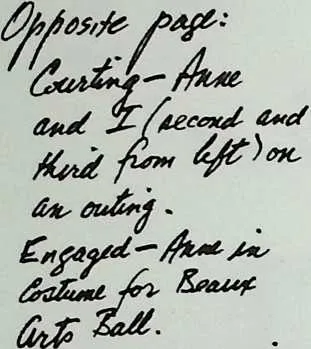 Opposite page:
Courting – Anne
and I (second and
third from left) on
an outing.
Engaged – Anne in
Costume for Beaux
Arts Ball.